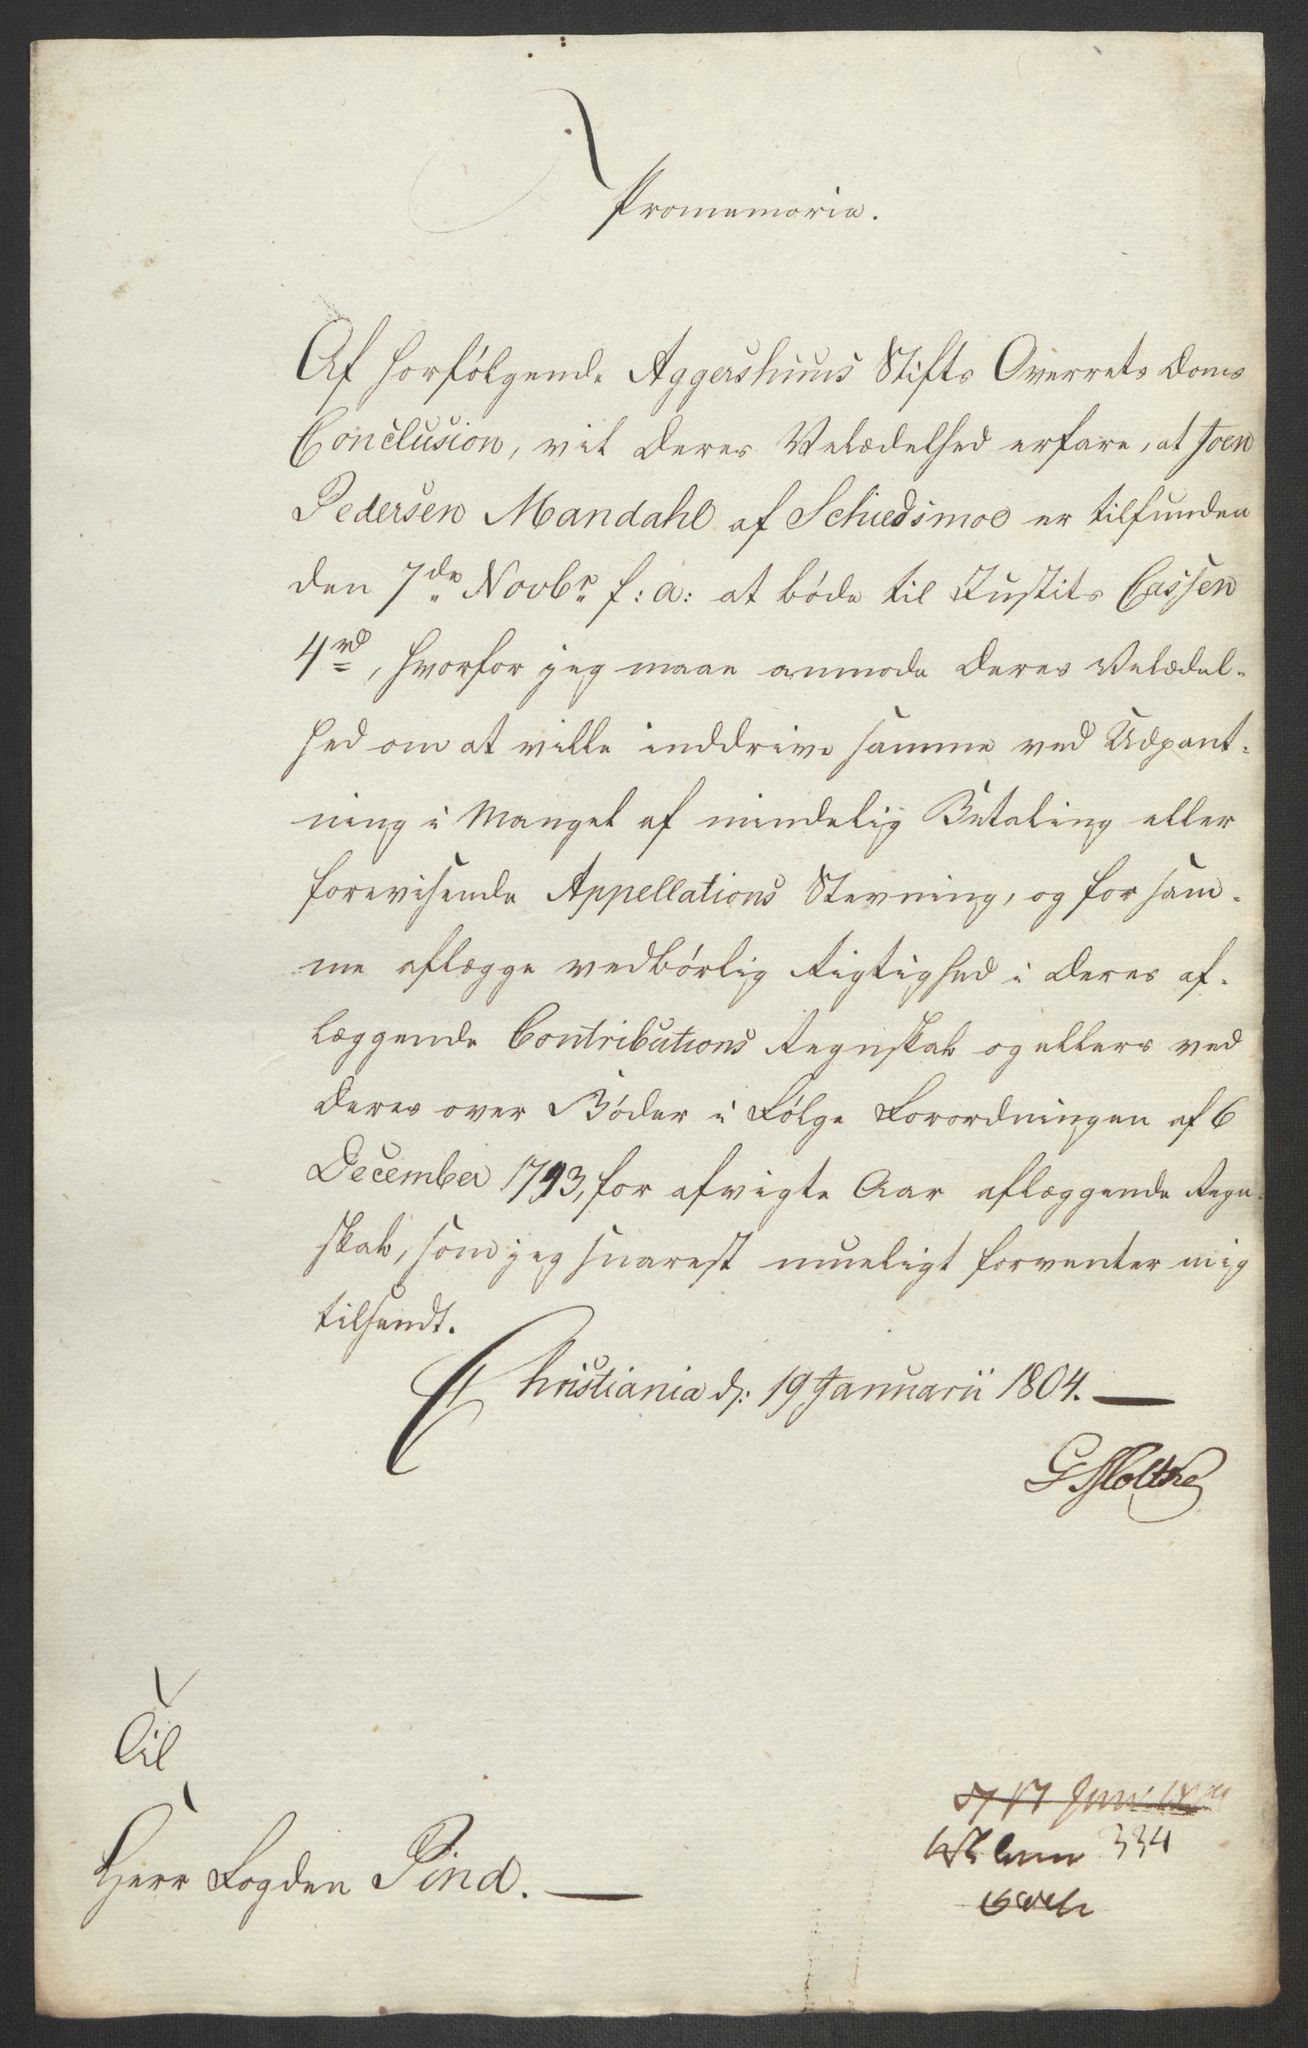 Promemoria.
Af horfølgende Aggershuus Stifts Overrets Doms
Conclusion, vil Deres Velædelhed erfare, at Joen
Pedersen Mandahl af Schiedsmoe er tilfunden
den 7de Novbr f: a: at bøde til Justits Cassen
4rd, hvorfor jeg maae anmode Deres Velædel-
hed om at ville inddrive samme ved Udpant-
ning i Mangel af mindelig Betaling eller
forevisende Appellations Stevning, og for sam-
me aflægge vedbørlig Rigtighed i Deres af-
læggende Contributions Regnskab og ellers ved
Deres over Bøder i Følge Forordningen af 6
December 1793, for afvigte Aar aflæggende Regn-
skab, som jeg snarest mueligt forventer mig
tilsendt.
Christiania d: 19 Januarii 1804.
G Moltke
Til
Herr Fogden Pind.
334